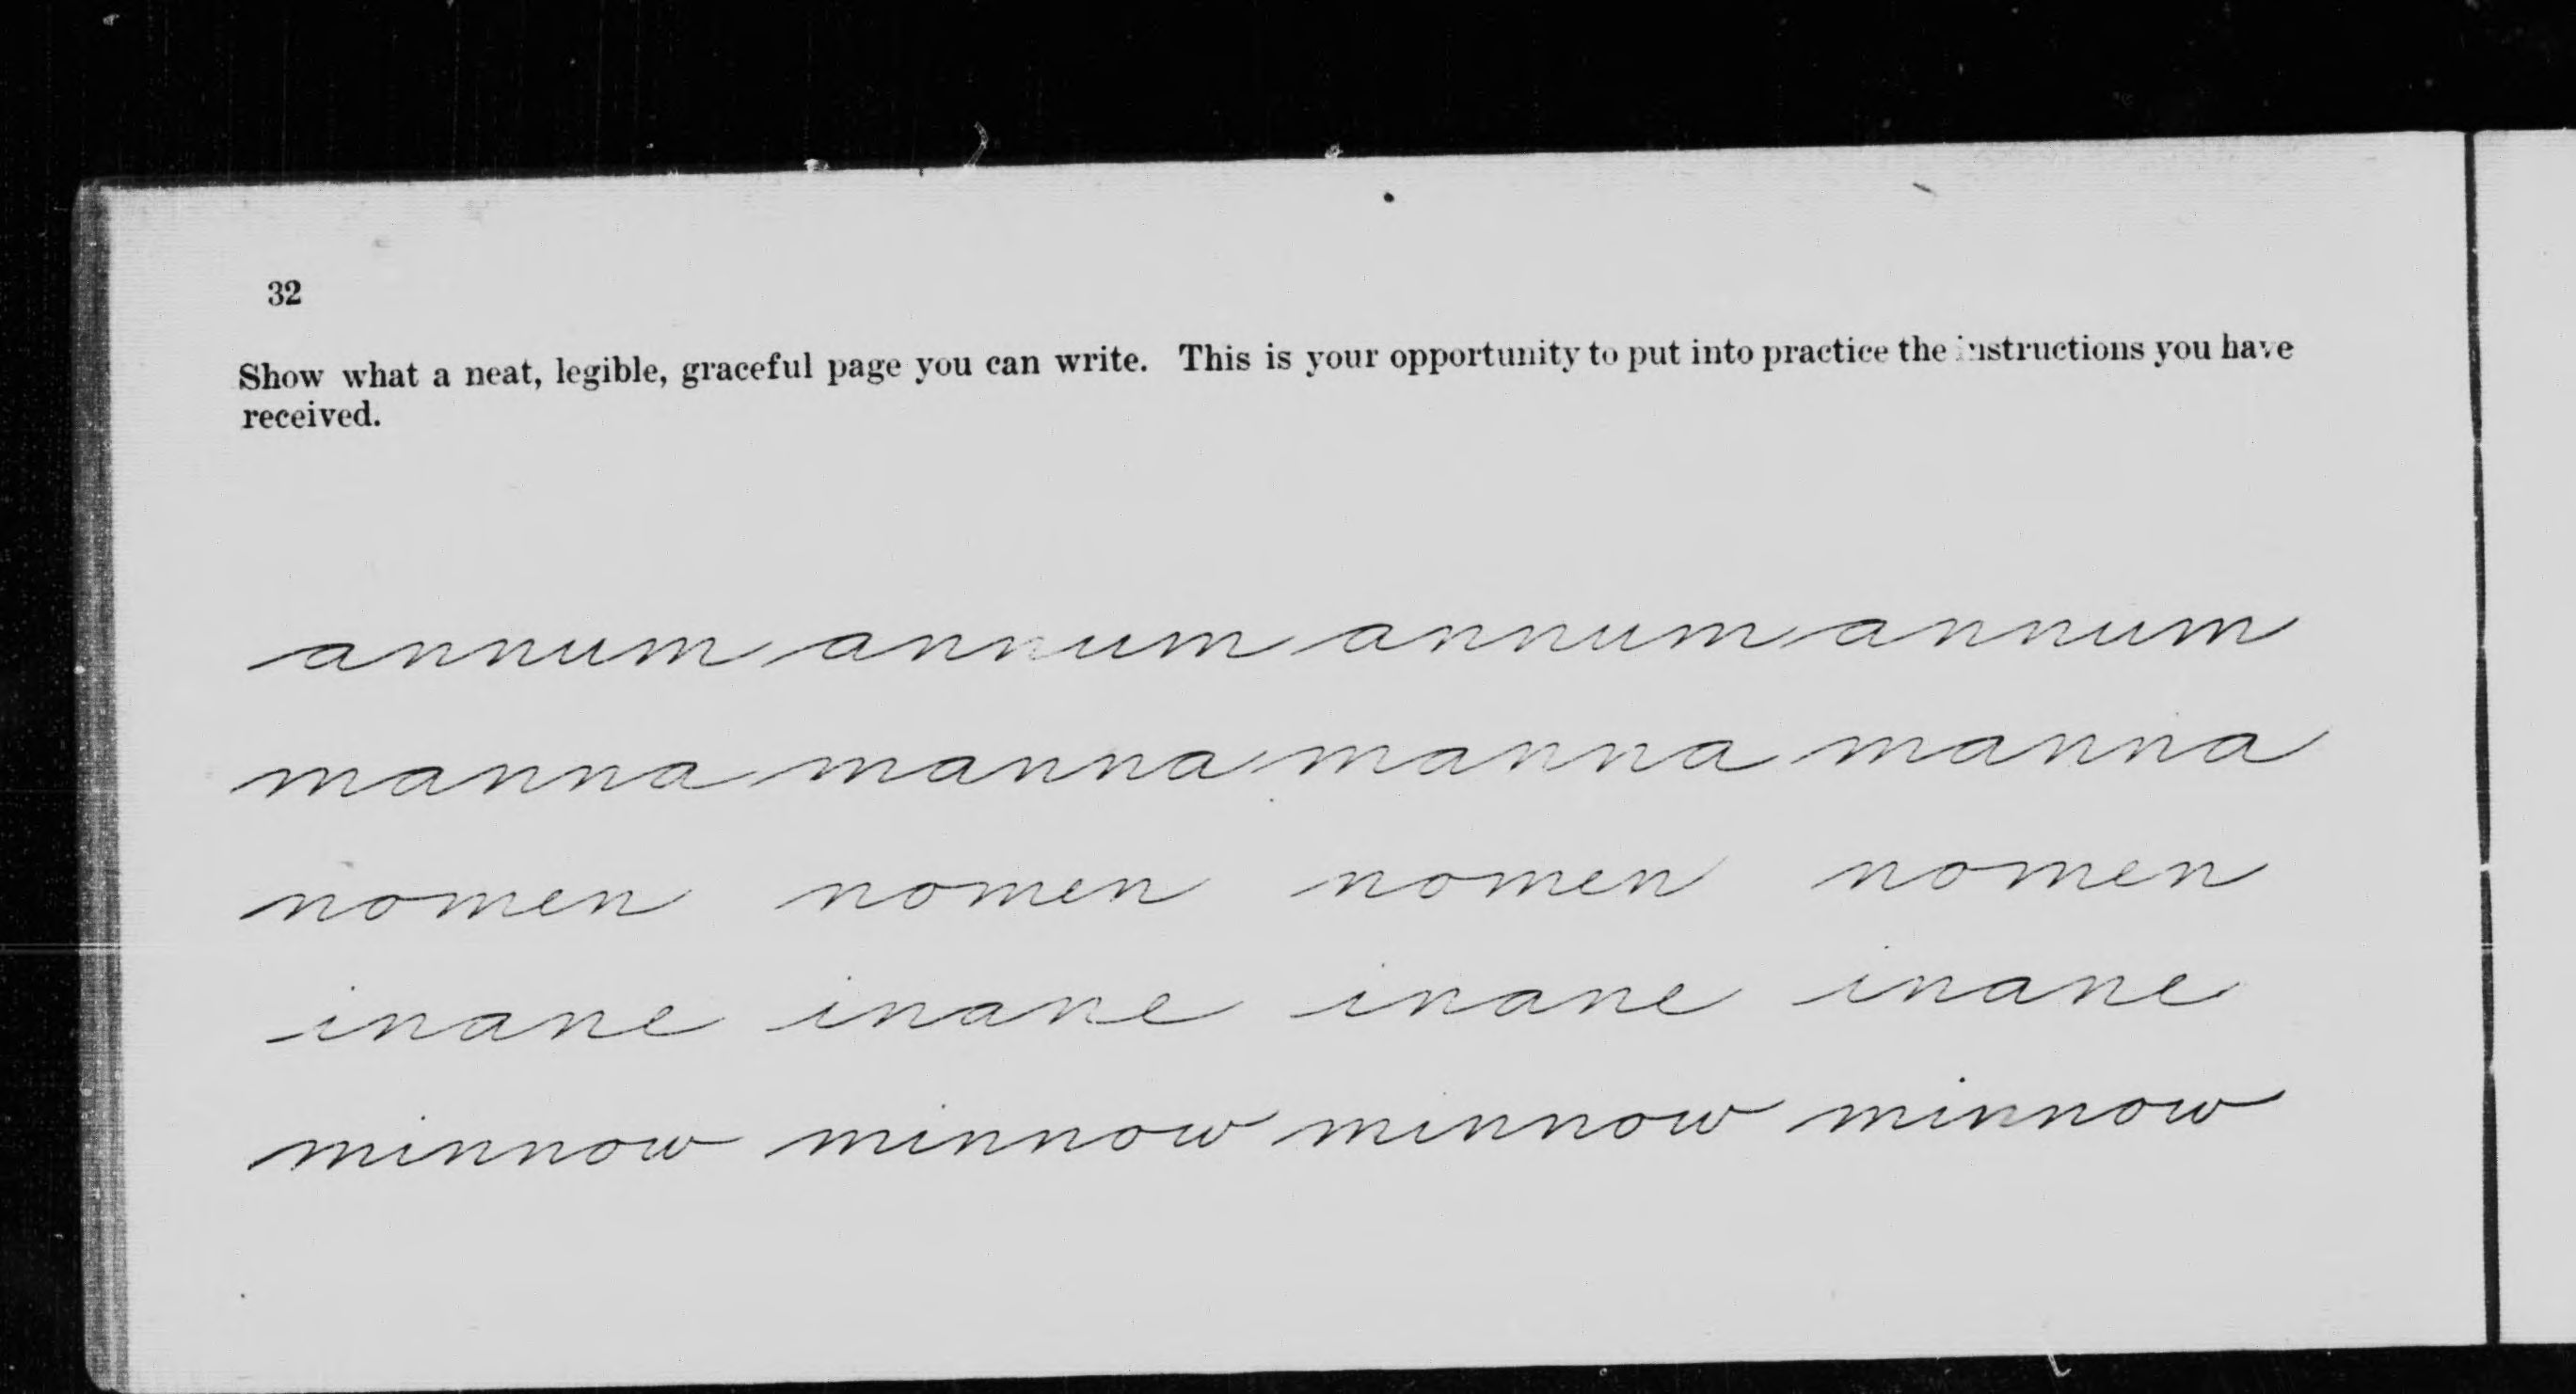 32
Show what a neat, legible, graceful page you can write. This is your opportunity to put into practice the instructions you have
received.
annum annum annum annum
manna manna manna manna
nomen nomen nomen nomen
inane inane inane inane
minnow minnow minnow minnow